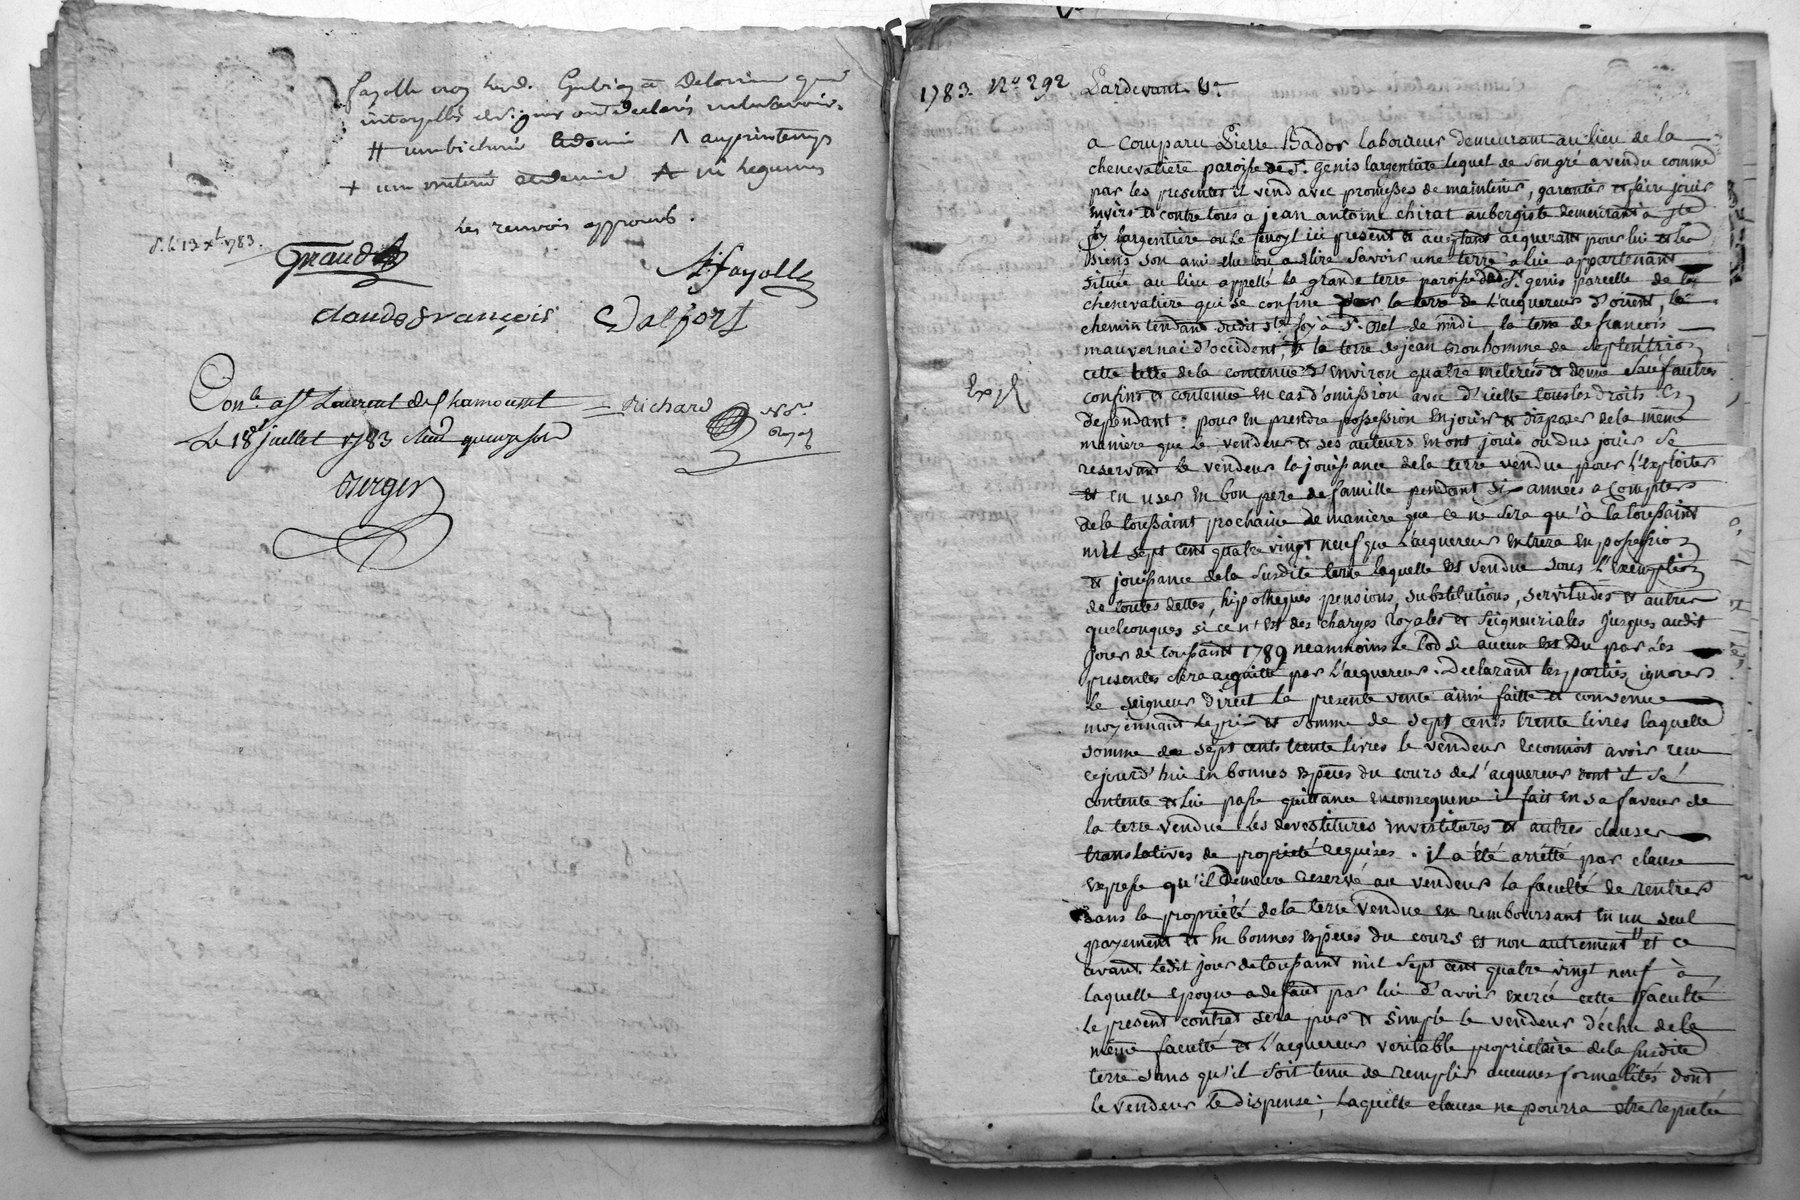 fayolle
intoyelle de signer ont declarés
# un bicheré et demi ∧ au printemps
+ et demie ni legumes
les renvois approuvés.
13 1783.
Grand
A: fayolle
claude françois Dalfort
Con.lé a St Laurent de Chamousset
Le 18e juillet 1783 quinze sols
Richard
No.re Royal
Berger
1783. No 292 Pardevant &a
a comparu Pierre Bador laboureur demeurant au lieu de la
chenevatiere paroisse de St. Genis largentiere lequel de son gré a vendu comme
par les presentes il vend avec promesses de maintenir, garantir et faire jouir
envers et contre tous a jean antoine chirat aubergiste demeurant a Ste
foy largentiere ici present et acceptant acquerant pour lui et les
siens son ami elu ou a elire savoir une terre a lui appartenant
située au lieu appellé la grande terre paroisse dud. St. genis parcelle de la
chenevatiere qui se confine par la terre de l'acquereur d'orient, le
chemin tendant dudit Ste foy à St. de midi, la terre de francois
mauvernai d'occident, et la terre de jean bonhomme de septentrion
cette de la contenue d'environ quatre meterées et demie sauf autres
confins et contenue en cas d'omission avec d'icelle tous les droits les
dependant: pour en prendre possession en jouir et disposer de la même
maniere que le vendeur et ses auteurs en ont joui ou dus jouir se
reservant le vendeur la jouissance de la terre vendue pour l'exploiter
et en user en bon pere de famille pendant six années a compter
de la toussaint prochaine de maniere que ce ne sera qu'à la toussaint
mil sept cent quatre vingt neuf que l'acquereur entrera en possession
et jouissance de la susdite terre laquelle est vendue sous l'exemption
de toutes dettes, hipotheques pensions, substitutions, servitudes et autres
quelconques si ce n'est des charges royales et seigneuriales jusques audit
jour de toussaint 1789 neanmoins le lod si aucun est du par ses
presentes sera acquitté par l'acquereur. Declarant les parties ignorer
le seigneur direct la presente vente ainsi faitte et convenue
moyennant le prix et somme de sept cents trente livres laquelle
somme de sept cents trente livres le vendeur reconnoit avoir recu
cejourd'hui en bonnes especes du cours de l'acquereur dont il se
contente et lui passe quittance en consequence il fait en sa faveur de
la terre vendue les devestitures investitures et autres clauses
translatives de proprieté requises. il a été arrétté par clause
expresse qu'il demeure reservé au vendeur la faculté de rentrer
dans la propriété de la terre vendue en remboursant en un seul
payement et en bonnes especes du cours et non autrement et ce
avant ledit jour de toussaint mil sept cent quatre vingt neuf à
laquelle epoque a defaut par lui d'avoir exercé cette faculté
le present contrat sera pur et simple le vendeur déchu de la
même faculté et l'acquereur veritable proprietaire de la susdite
terre sans qu'il soit tenu de remplir aucunes formalités dont
le vendeur le dispense; laquelle clause ne pourra etre reputée